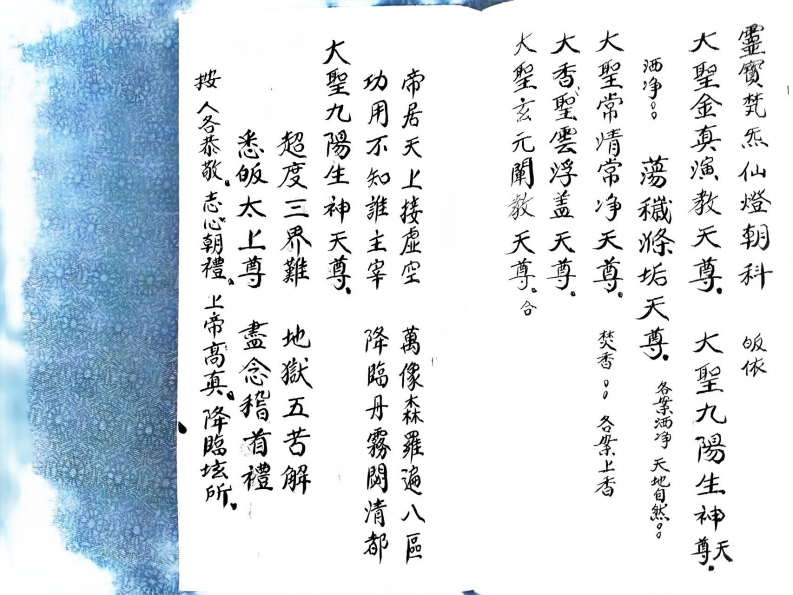 靈寶梵炁仙燈朝科 皈依
大聖金真演教天尊。 大聖九陽生神天尊。
洒净。。 蕩穢滌垢天尊。 各案洒净 天地自然。。
大聖常清常净天尊。 焚香。。 各案上香
大香聖雲浮盖天尊。
大聖玄元闡教天尊。合
帝居天上接虛空 萬像森羅遍八區
功用不知誰主宰 降臨丹霧閟清都
大聖九陽生神天尊。
超度三界難 地獄五苦解
悉皈太上尊 盡念稽首禮
按人各恭敬。志心朝禮。上帝高真。降臨坛所。